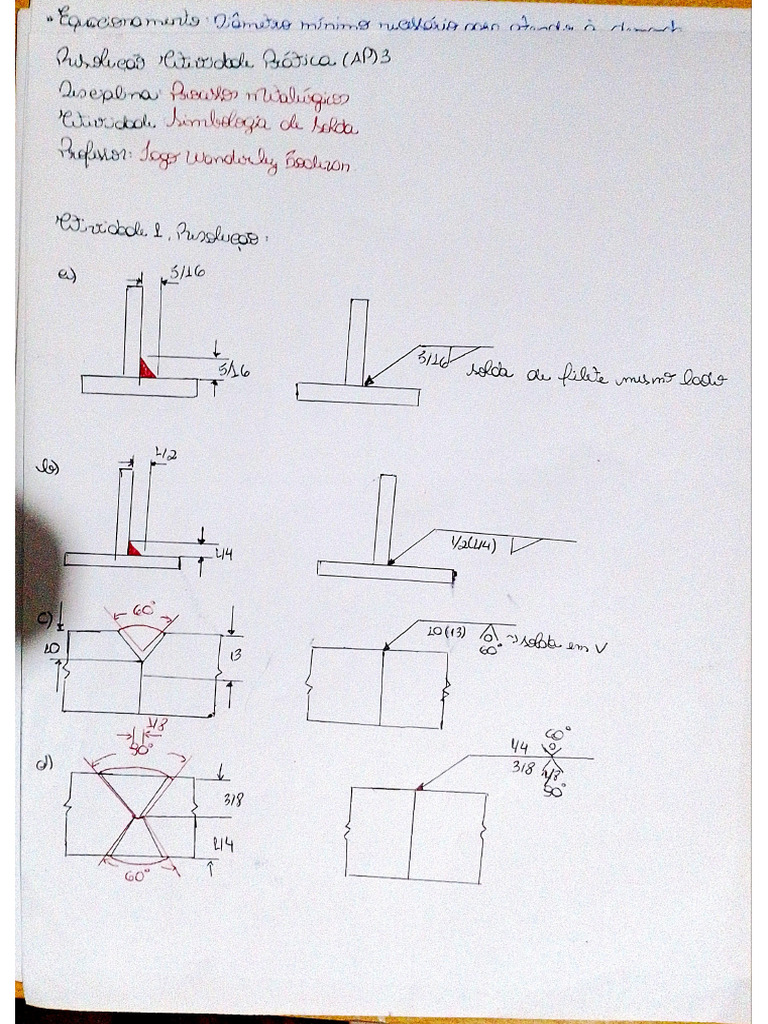 • Equacionamento: Diâmetro mínimo necessário para atender à
Resolução Atividade Prática (AP)3
Disciplina: Processos Metalúrgicos
Atividade: Simbologia de solda
Professor: Iago Wanderley
Atividade 1, Resolução:
a)
5/16
5/16
5/16
solda de filete mesmo lado
b)
1/2
1/4
1/2(1/4)
c)
60°
10
13
10(13)
0
60°
→ solda em V
d)
1/8
90°
3/8
1/4
60°
60°
0
1/4
3/8
1/8
90°